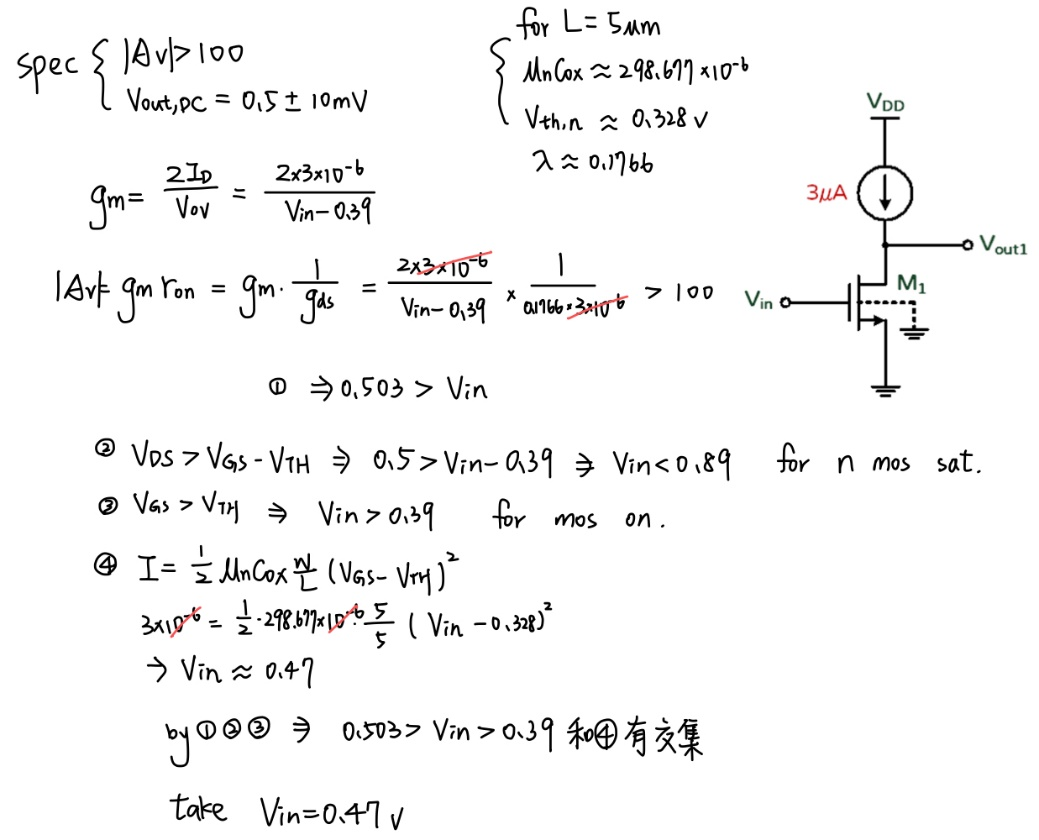 spec { |Av|>100
Vout,DC = 0.5 ± 10mV
for L = 5μm
μnCox ≈ 298.677×10^-6
Vth,n ≈ 0.328 V
λ ≈ 0.1766
gm = 2ID / Vov = 2×3×10^-6 / Vin-0.39
|Av| = gm ron = gm · 1 / gds = 2×3×10^-6 / Vin-0.39 × 1 / 0.1766×3×10^-6 > 100
① ⇒ 0.503 > Vin
VDD
3μA
Vout1
Vin
M1
② VDS > VGS - VTH ⇒ 0.5 > Vin-0.39 ⇒ Vin<0.89 for n mos sat.
③ VGS > VTH ⇒ Vin > 0.39 for mos on.
④ I = 1/2 μnCox W/L (VGS - VTH)^2
3×10^-6 = 1/2 · 298.677×10^-6 · 5/5 ( Vin - 0.328)^2
→ Vin ≈ 0.47
by ① ② ③ ⇒ 0.503 > Vin > 0.39 和④ 有交集
take Vin=0.47 V